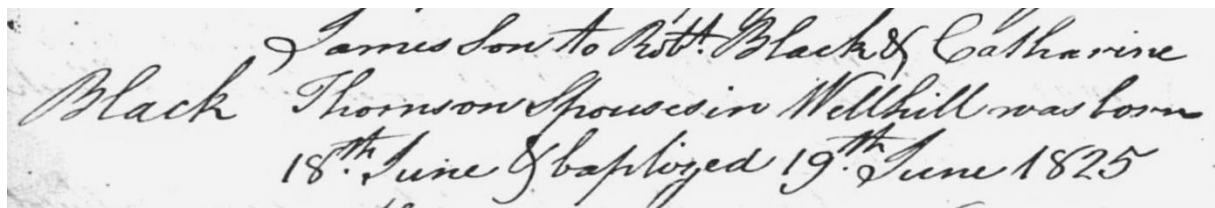 James Son to Robt. Black & Catharine
Black Thomson Spouses in Wellhill was born
18th. June & baptized 19th. June 1825